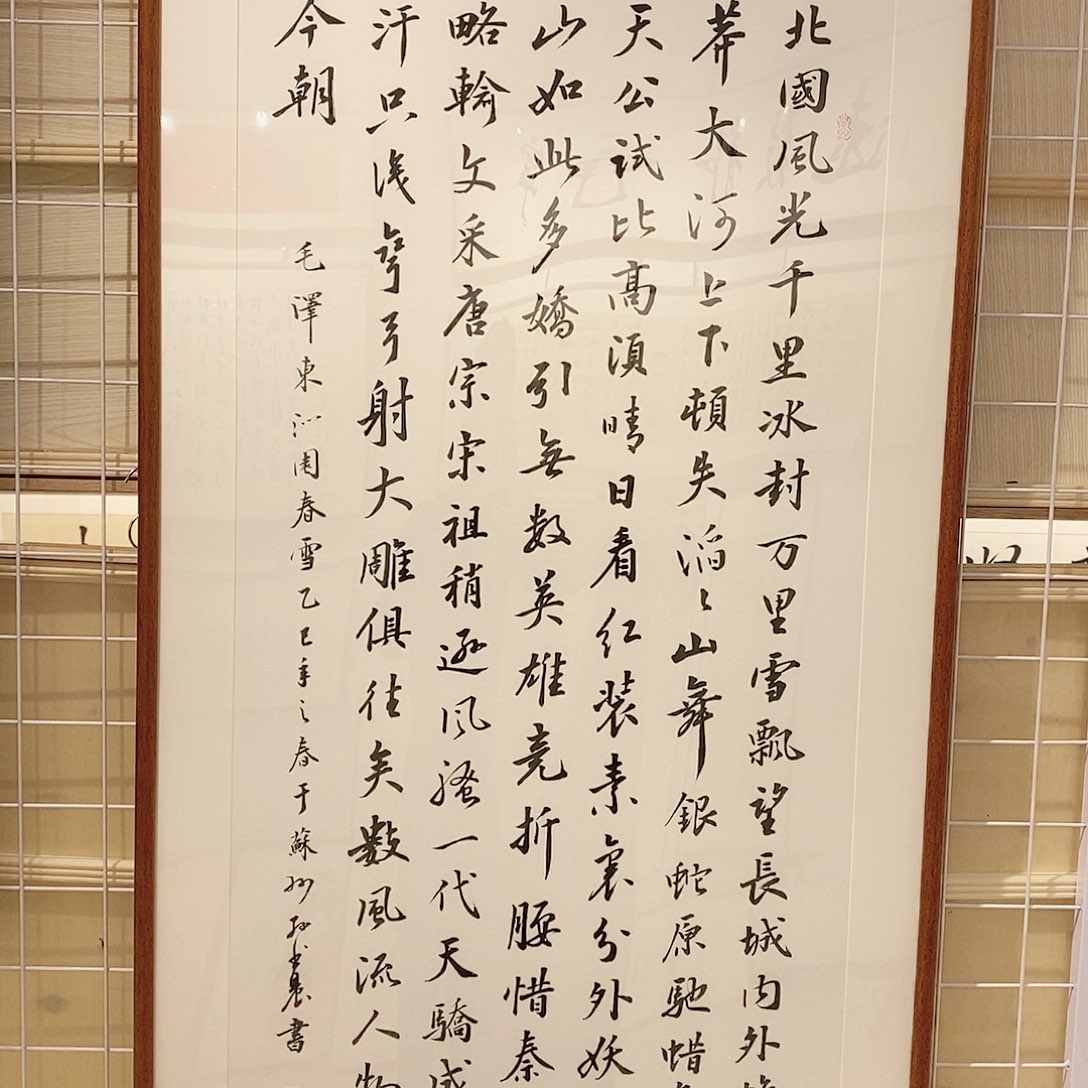 北國風光千里冰封万里雪飄望長城内外惟
莽大河上下頓失滔〻山舞銀蛇原馳蜡象
天公試比高須晴日看红装素裹分外妖
山如此多嬌引無数英雄竞折腰惜秦
略輸文采唐宗宋祖稍逊风骚一代天驕成
汗只识弯弓射大雕俱往矣數風流人物
今朝
毛澤東沁园春雪乙巳年之春于蘇州孙
書